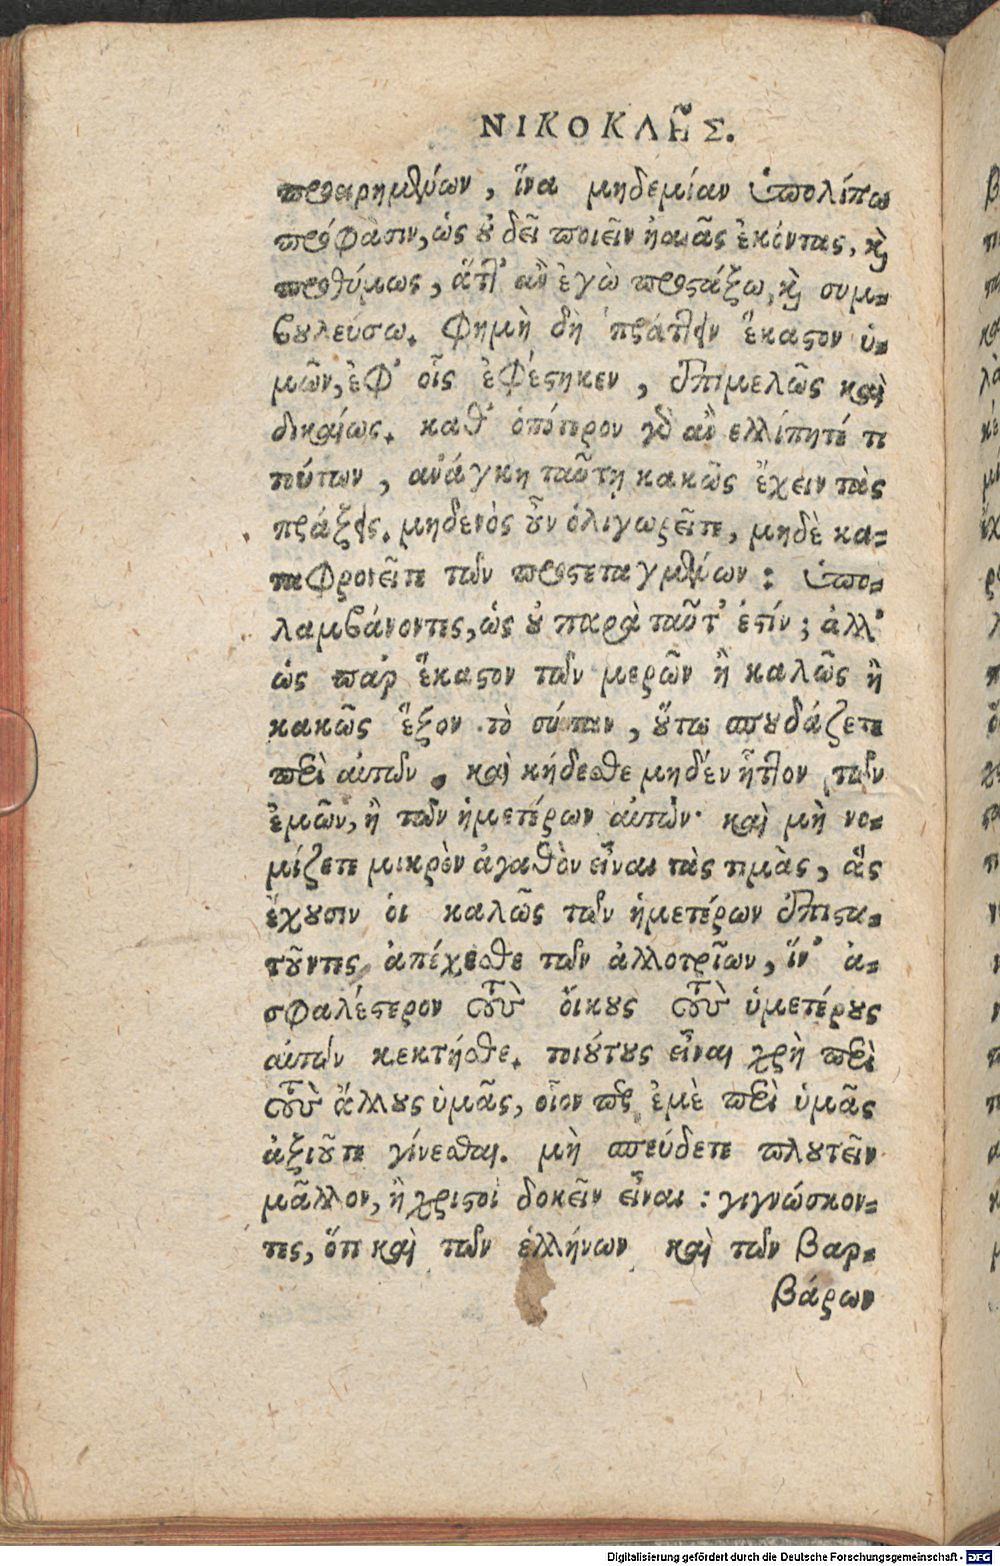 ΝΙΚΟΚΛΗ͂Σ.
προειρημένων, ἵνα μηδεμίαν ὑπολίπω
πρόφασιν, ὡς οὐ δεῖ ποιεῖν ἡμᾶς ἑκόντας, καὶ
προθύμως, ἅττ᾽ ἂν ἐγὼ προστάξω, καὶ συμ-
βουλεύσω. Φημὴ δὴ πράττειν ἕκαστον ὑ-
μῶν, ἐφ᾽ οἷς ἐφέστηκεν, ἐπιμελῶς καὶ
δικαίως. καθ᾽ ὁπότερον γὰρ ἂν ἐλλίπητέ τι
τούτων, ἀνάγκη ταύτῃ κακῶς ἔχειν τὰς
πράξεις. μηδενὸς οὖν ὀλιγωρεῖτε, μηδὲ κα-
ταφρονεῖτε τῶν προστεταγμένων: ὑπο-
λαμβάνοντες, ὡς οὐ παρὰ τοῦτ᾽ ἐστίν; ἀλλ᾽
ὡς παρ ἕκαστον τῶν μερῶν ἢ καλῶς ἢ
κακῶς ἕξον τὸ σύμπαν, οὕτω σπουδάζετε
περὶ αὐτῶν. καὶ κήδεσθε μηδὲν ἧττον τῶν
ἐμῶν, ἢ τῶν ἡμετέρων αὐτῶν· καὶ μὴ νο-
μίζετε μικρὸν ἀγαθὸν εἶναι τὰς τιμὰς, ἃς
ἔχουσιν οἱ καλῶς τῶν ἡμετέρων ἐπιστα-
τοῦντες, ἀπέχεσθε τῶν ἀλλοτρίων, ἵν᾽ ἀ-
σφαλέστερον τοὺς οἴκους τοὺς ὑμετέρους
αὐτῶν κεκτῆσθε. τοιούτους εἶναι χρὴ περὶ
τοὺς ἄλλους ὑμᾶς, οἷον περ ἐμὲ περὶ ὑμᾶς
ἀξιοῦτε γίνεσθαι. μὴ σπεύδετε πλουτεῖν
μᾶλλον, ἢ χρηστοὶ δοκεῖν εἶναι: γιγνώσκον-
τες, ὅτι καὶ τῶν ἑλλήνων καὶ τῶν βαρ-
βάρων
Digitalisierung gefördert durch die Deutsche Forschungsgemeinschaft - DFG